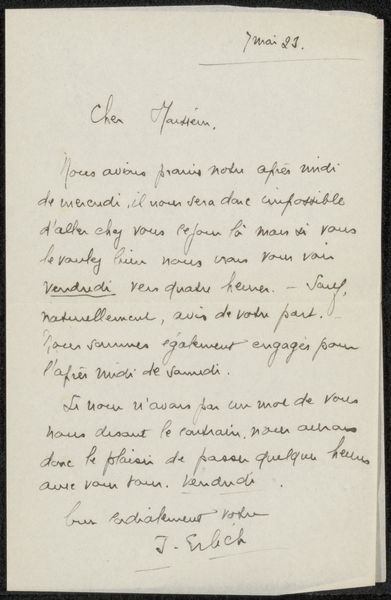 7 mai 23.
Cher Monsieur,
Nous avions promis notre après midi
de mercredi, il nous sera donc impossible
d'aller chez vous ce jour là mais si vous
le voulez bien nous irons vous voir
vendredi vers quatre heures. — Sauf,
naturellement, avis de votre part. —
Nous sommes également engagés pour
l'après midi de samedi.
Si nous n'avons pas un mot de vous
nous disant le contraire, nous aurons
donc le plaisir de passer quelques heures
avec vous tous. Vendredi.
bien cordialement votre
J. Erlich